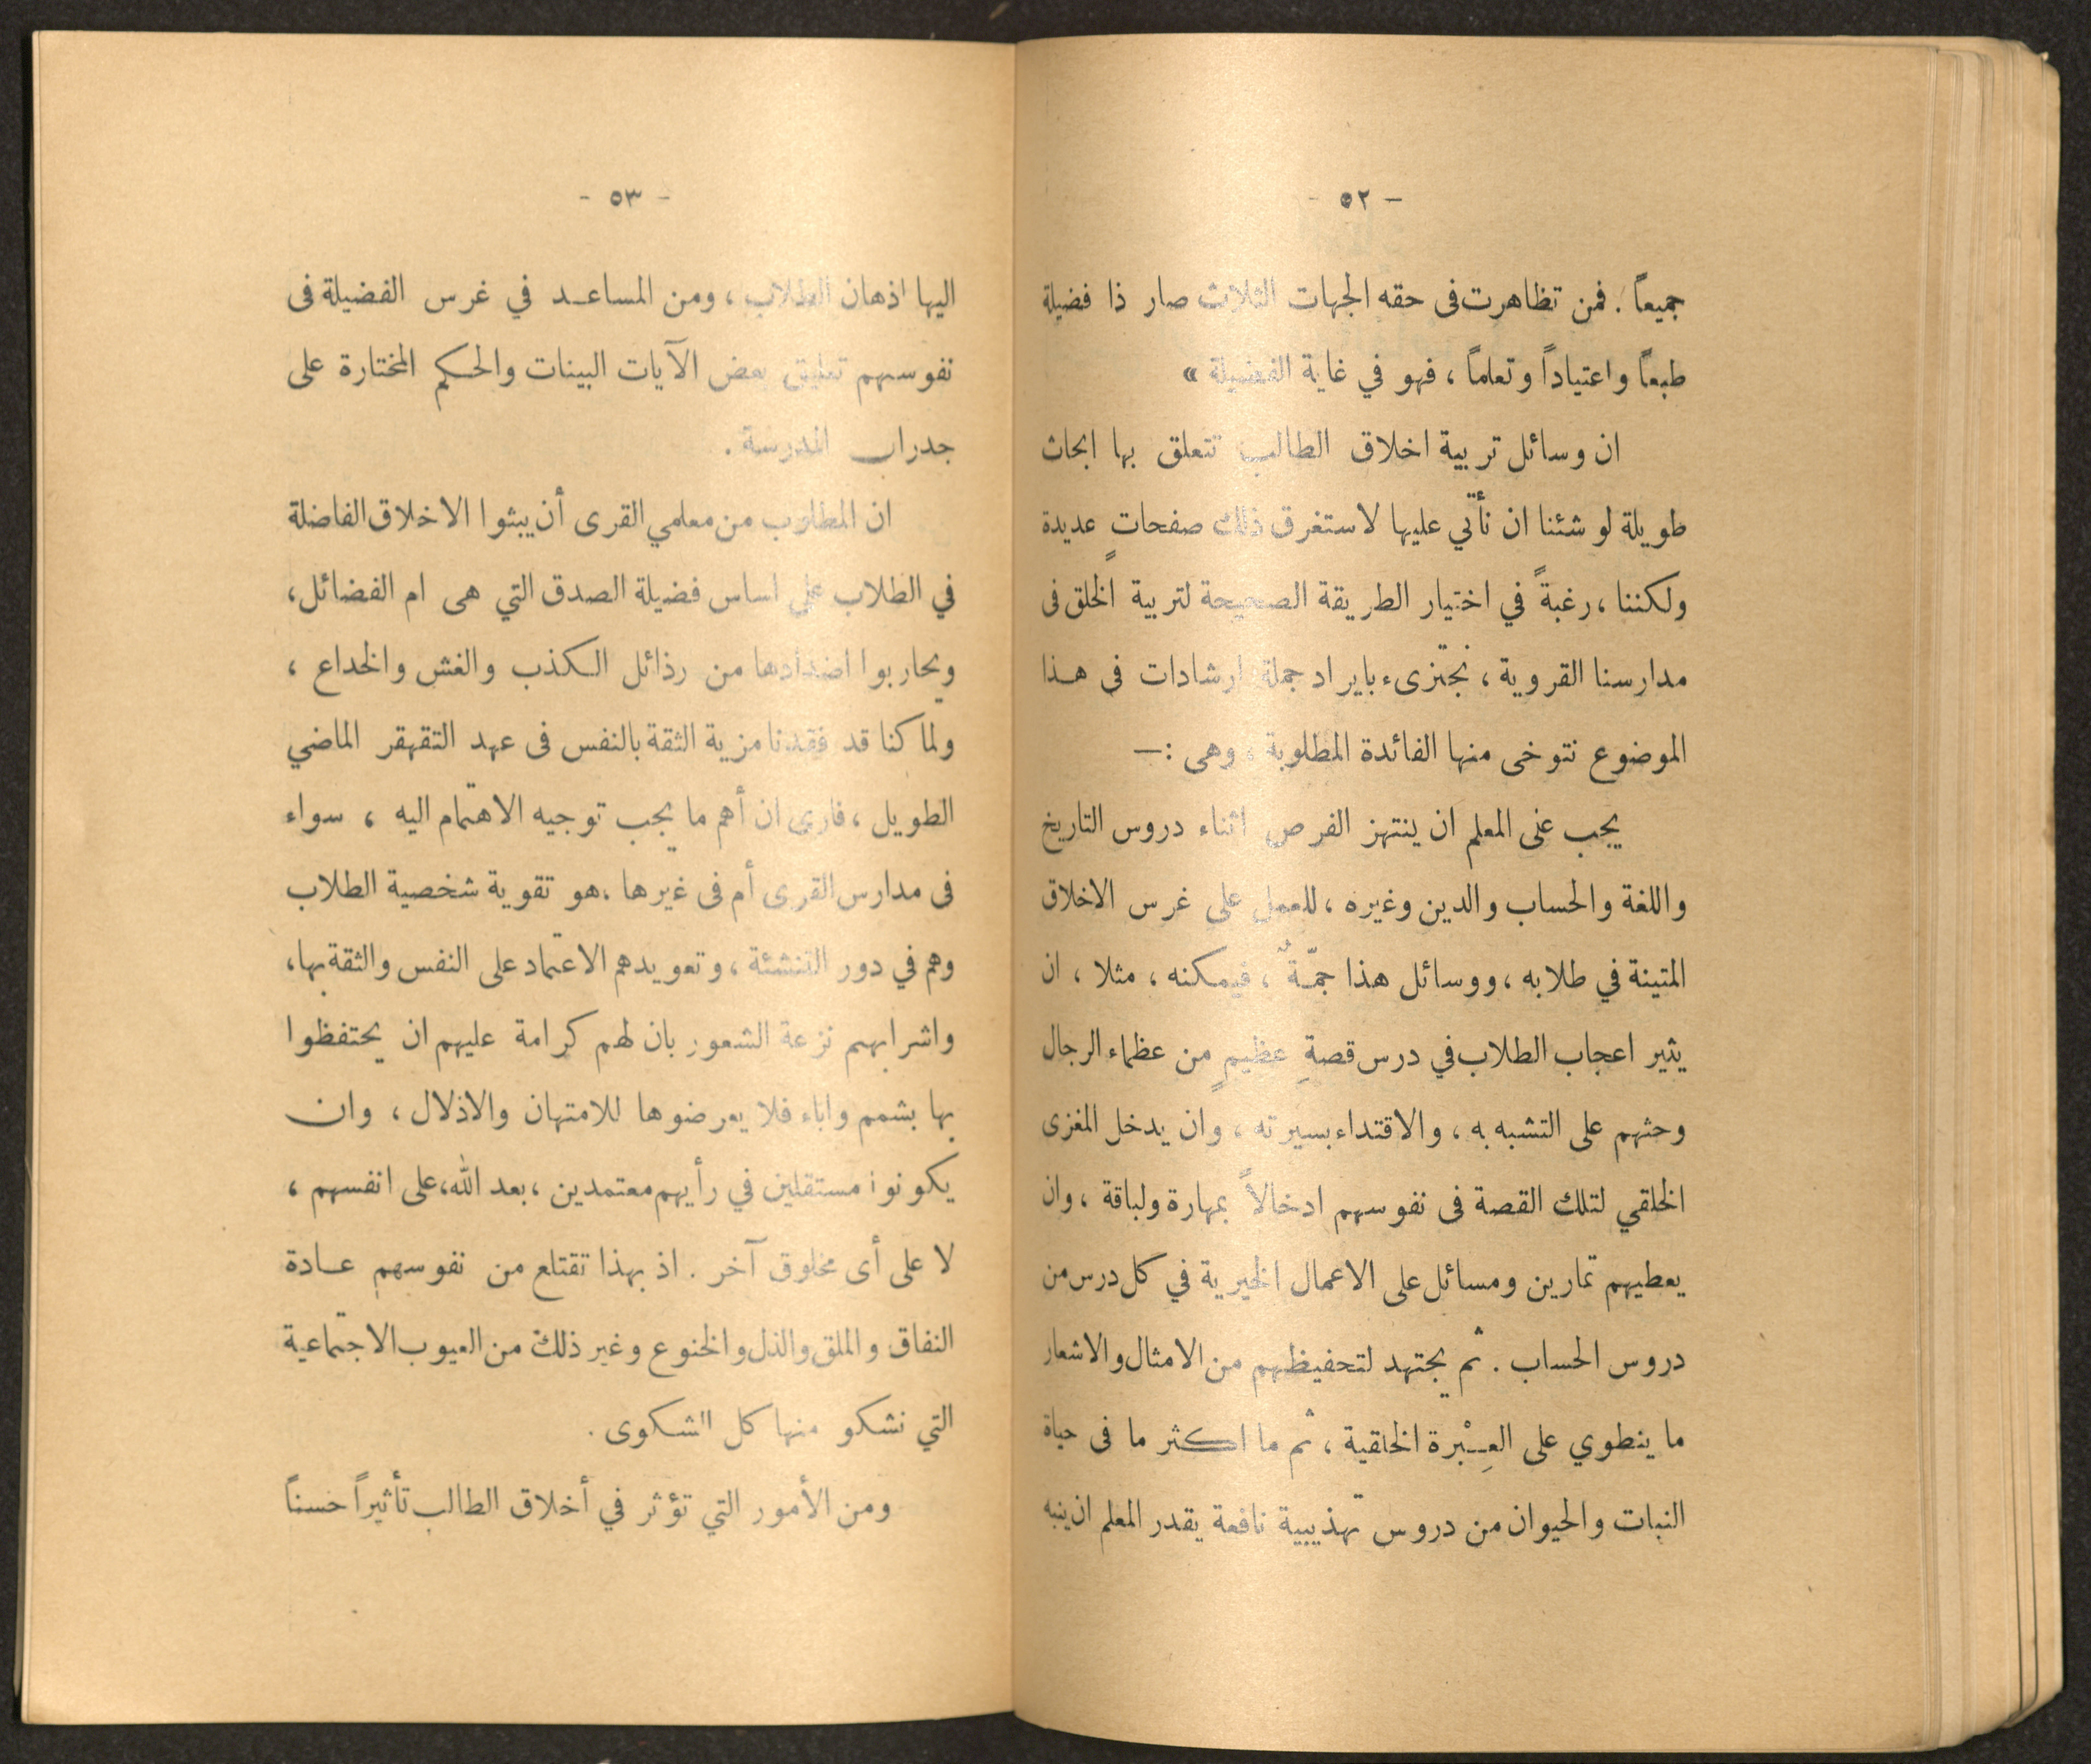 - ٥٢ -
جميعاً . فمن تظاهرت فى حقه الجهات الثلاث صار ذا فضيلة
طبعاً واعتياداً وتعلماً ، فهو في غاية الفضيلة »
ان وسائل تربية اخلاق الطالب تتعلق بها ابحاث
طويلة لو شئنا ان نأتي عليها لاستغرق ذلك صفحاتٍ عديدة
ولكننا ، رغبةً في اختيار الطريقة الصحيحة لتربية الخلق فى
مدارسنا القروية ، نجتزىء بايراد جملة ارشادات فى هـذا
الموضوع نتوخى منها الفائدة المطلوبة ، وهى :—
يجب على المعلم ان ينتهز الفرص اثناء دروس التاريخ
واللغة والحساب والدين وغيره ، للعمل على غرس الاخلاق
المتينة في طلابه ، ووسائل هذا جمّةٌ ، فيمكنه ، مثلا ، ان
يثير اعجاب الطلاب في درس قصةِ عظيمٍ من عظماء الرجال
وحثهم على التشبه به ، والاقتداء بسيرته ، وان يدخل المغزى
الخلقي لتلك القصة فى نفوسهم ادخالاً بمهارة ولباقة ، وان
يعطيهم تمارين ومسائل على الاعمال الخيرية في كل درس من
دروس الحساب . ثم يجتهد لتحفيظهم من الامثال والاشعار
ما ينطوي على العِـبْرة الخلقية ، ثم ما اكثر ما فى حياة
النبات والحيوان من دروس تهذيبية نافعة يقدر المعلم ان ينبه
- ٥٣ -
اليها اذهان الطلاب ، ومن المساعـد في غرس الفضيلة فى
نفوسهم تعليق بعض الآيات البينات والحكم المختارة على
جدران المدرسة .
ان المطلوب من معلمي القرى أن يبثوا الاخلاق الفاضلة
في الطلاب على اساس فضيلة الصدق التي هى ام الفضائل ،
ويحاربوا اضدادها من رذائل الكذب والغش والخداع ،
ولما كنا قد فقدنا مزية الثقة بالنفس فى عهد التقهقر الماضي
الطويل ، فارى ان أهم ما يجب توجيه الاهتمام اليه ، سواء
فى مدارس القرى أم فى غيرها ، هو تقوية شخصية الطلاب
وهم في دور التنشئة ، وتعويدهم الاعتماد على النفس والثقة بها ،
واشرابهم نزعة الشعور بان لهم كرامة عليهم ان يحتفظوا
بها بشمم واباء فلا يعرضوها للامتهان والاذلال ، وان
يكونوا مستقلين في رأيهم معتمدين ، بعد الله ، على انفسهم ،
لا على أى مخلوق آخر . اذ بهذا تقتلع من نفوسهم عـادة
النفاق والملق والذل والخنوع وغير ذلك من العيوب الاجتماعية
التي نشكو منها كل الشكوى .
ومن الأمور التي تؤثر في أخلاق الطالب تأثيراً حسناً